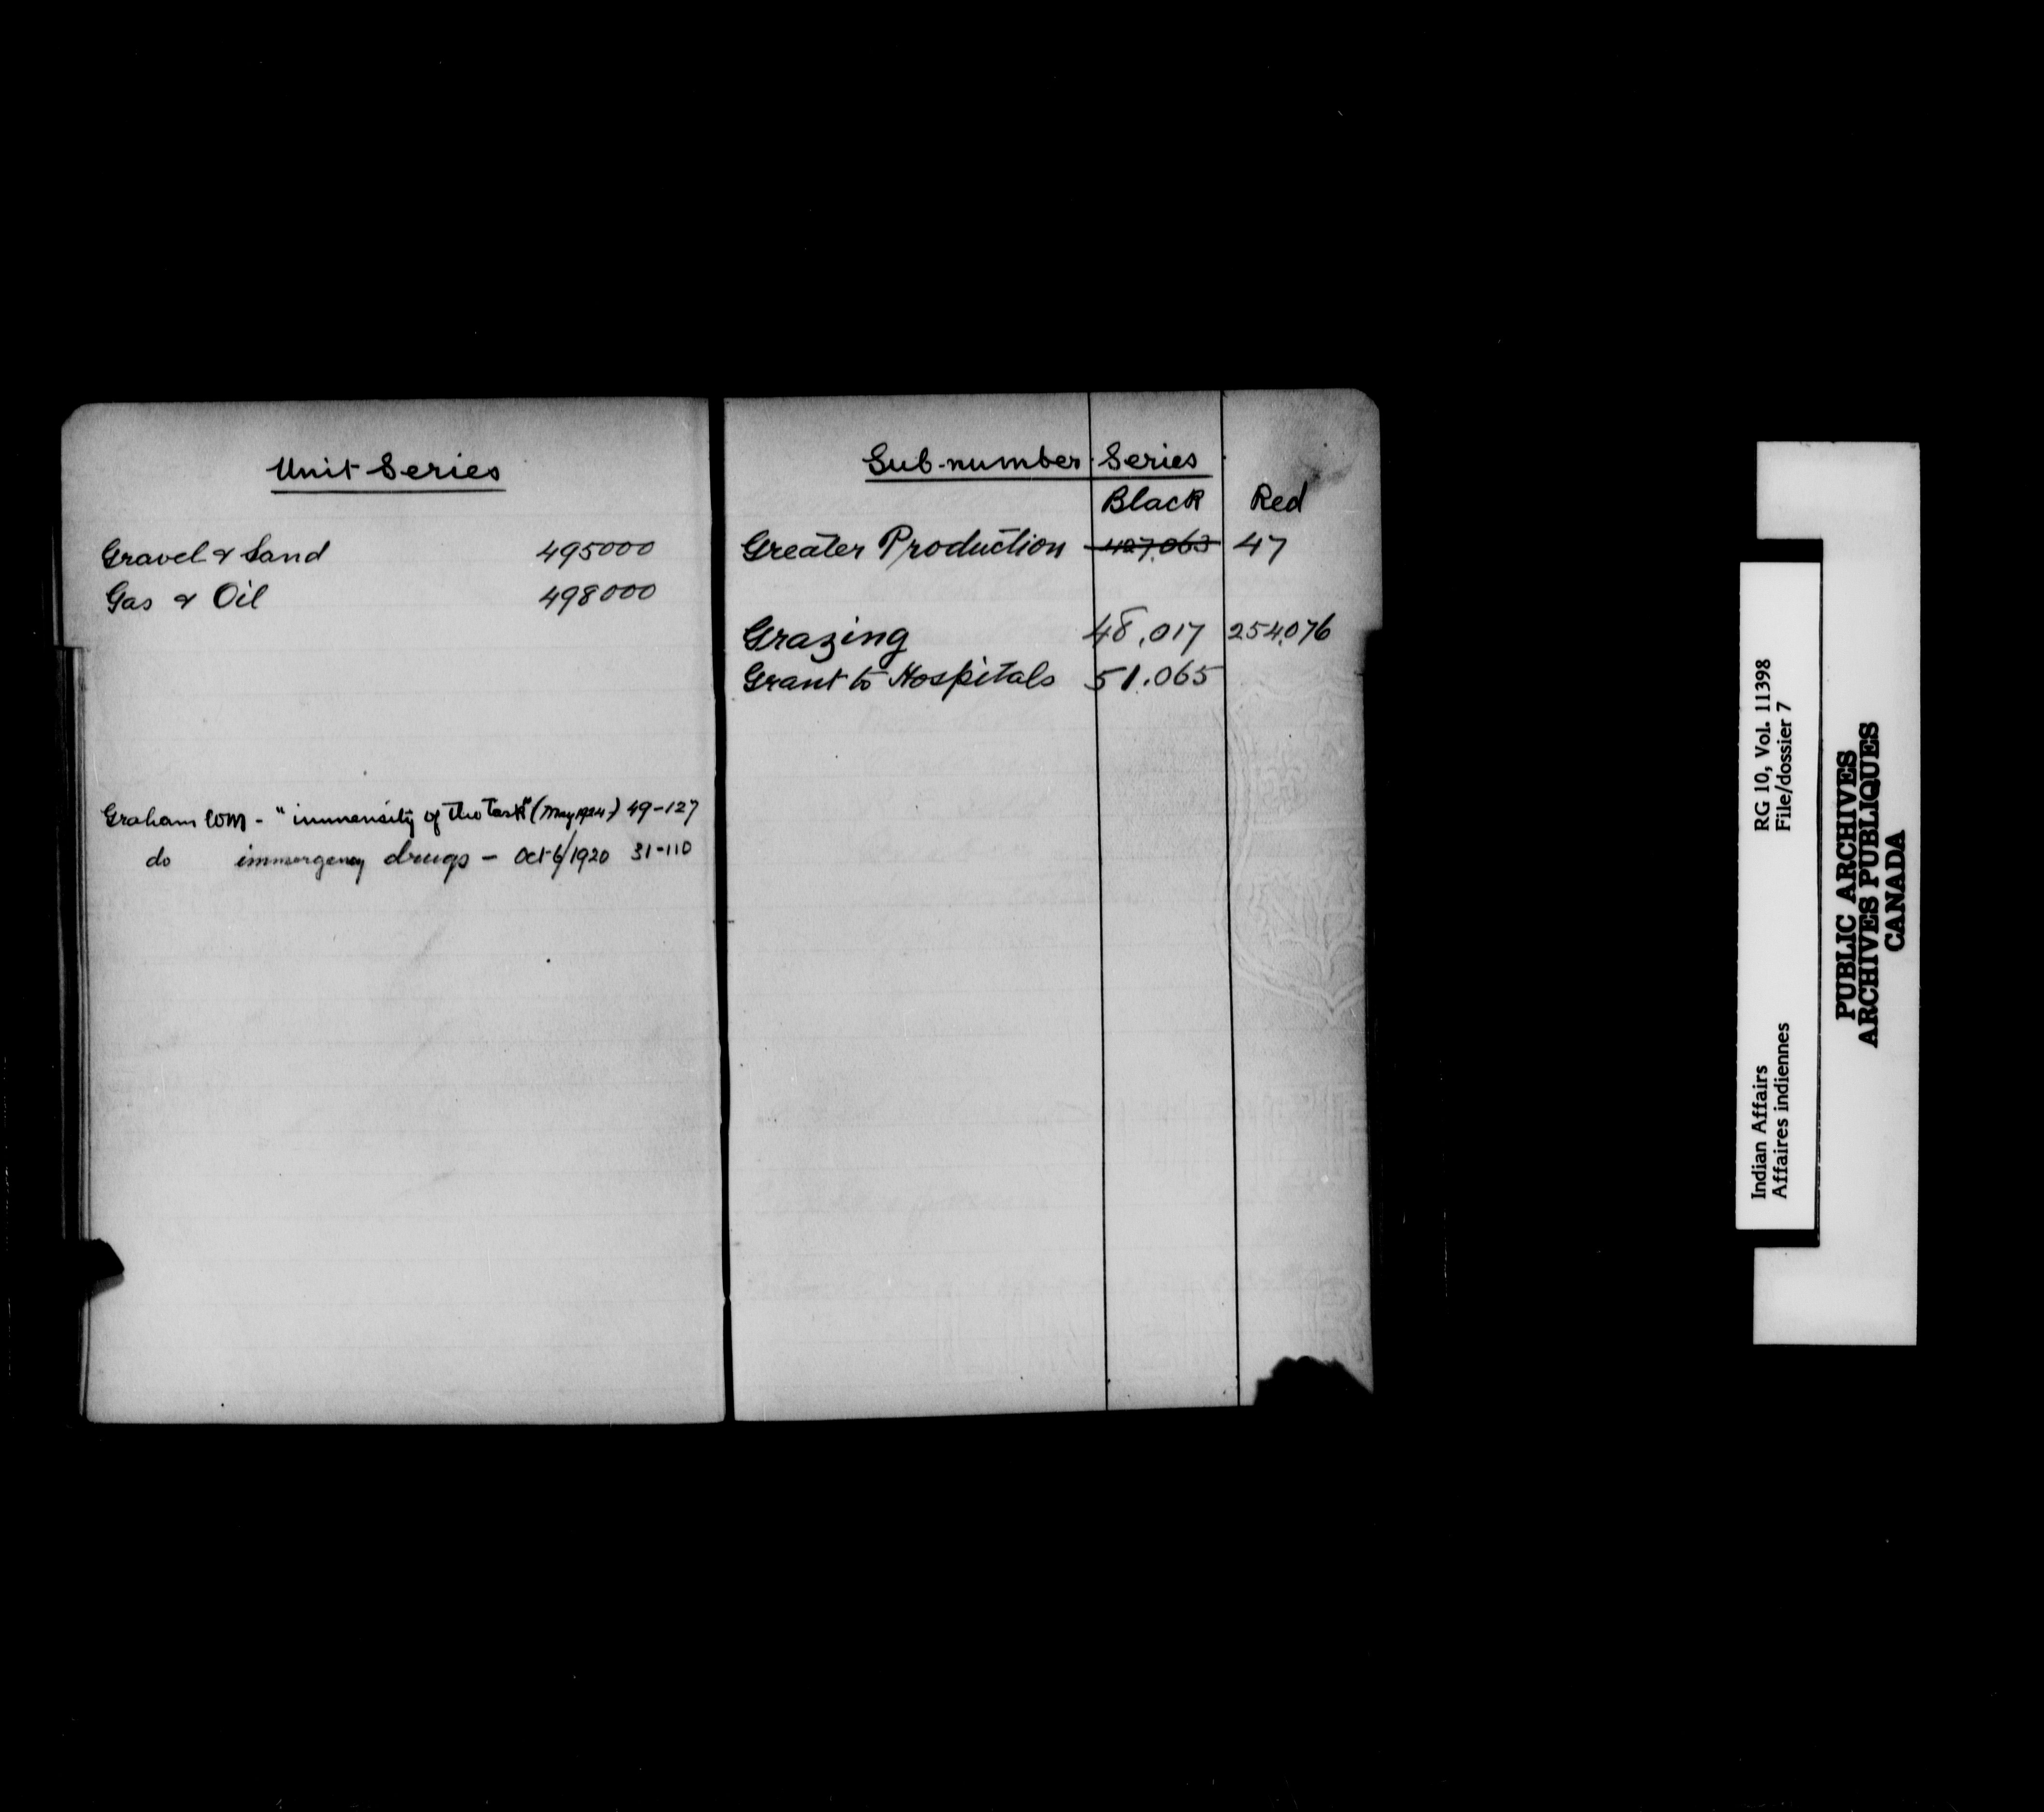 Unit Series
Gravel & Sand 495000
Gas & Oil 498000
Graham WM - "immensity of the Task" (May 1924) 49-127
do immergency drugs - Oct 6/1920 31-110
Sub-number Series
Black Red
Greater Production 427,063 47
Grazing 48,017 254,076
Grant to Hospitals 51.065
Indian Affairs RG 10, Vol. 11398
Affaires indiennes File/dossier 7
PUBLIC ARCHIVES
ARCHIVES PUBLIQUES
CANADA